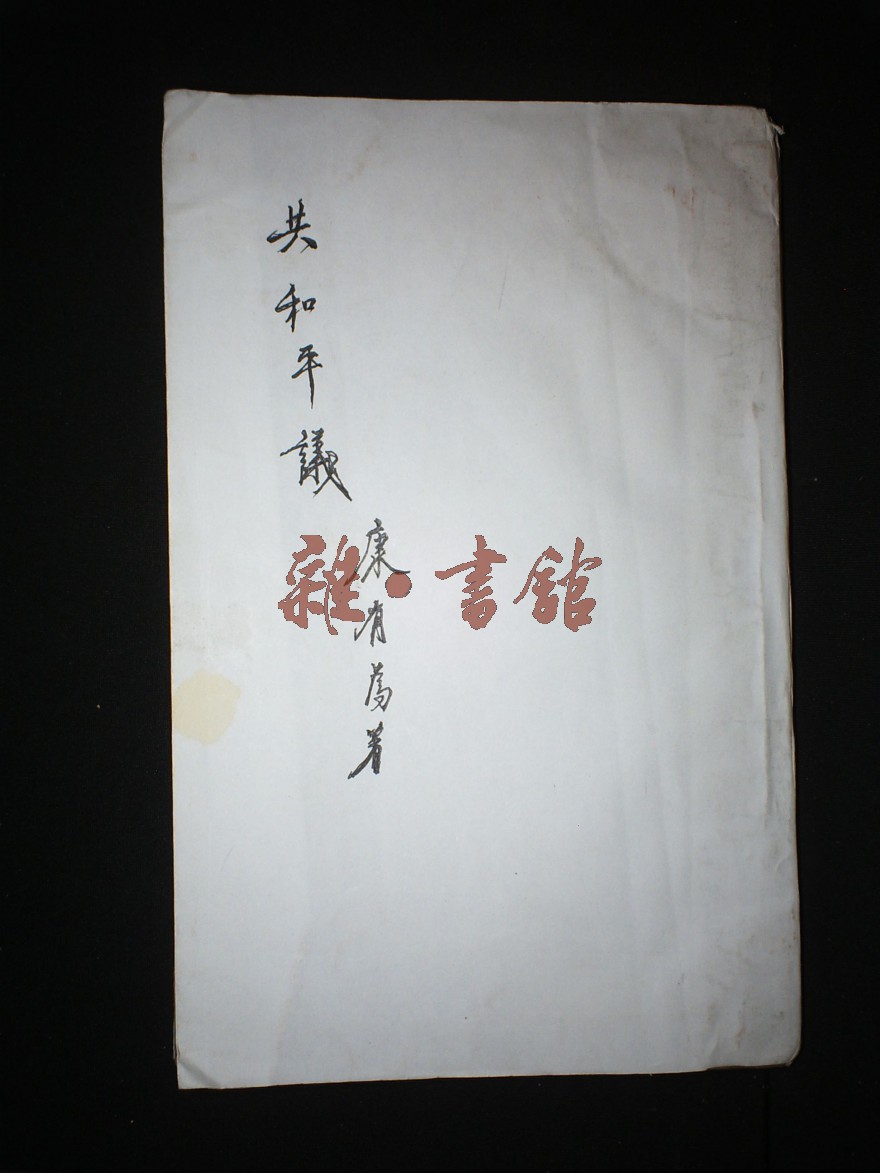 共和平議
康有為著
雜·書館